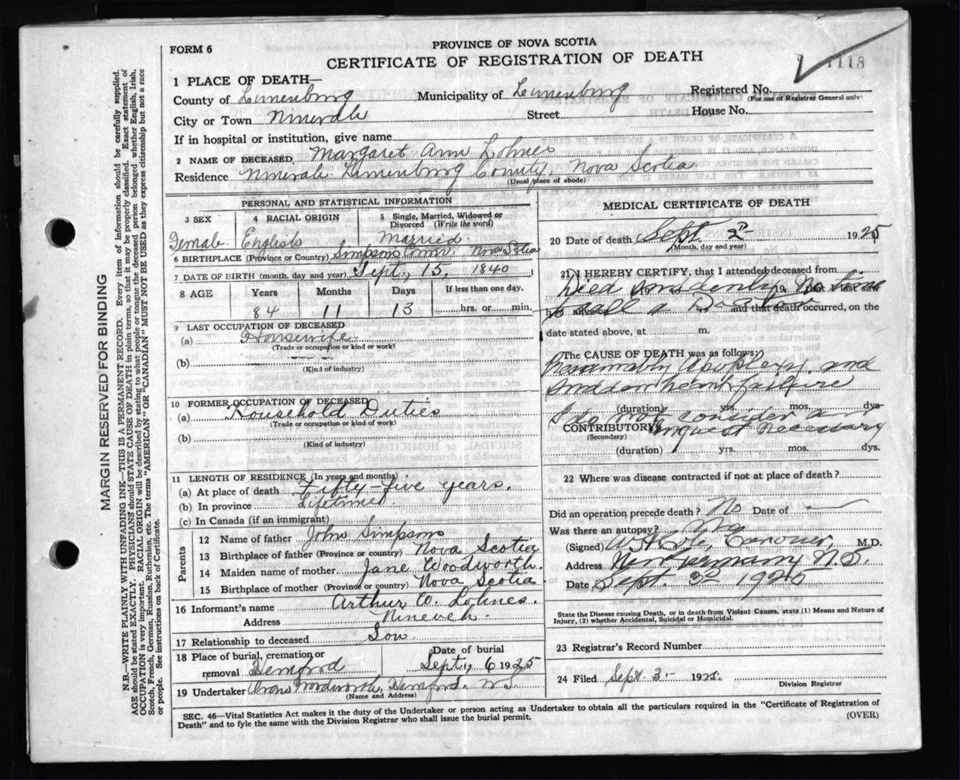 FORM 6
PROVINCE OF NOVA SCOTIA
CERTIFICATE OF REGISTRATION OF DEATH
1118
1 PLACE OF DEATH—
County of Lunenburg Municipality of Lunenburg Registered No.
(For use of Registrar General only)
City or Town Street House No.
If in hospital or institution, give name
2 NAME OF DECEASED Margaret Ann Lohnes
Residence Lunenburg County, Nova Scotia
(Usual place of abode)
PERSONAL AND STATISTICAL INFORMATION
3 SEX
Female
4 RACIAL ORIGIN
English
5 Single, Married, Widowed or Divorced (Write the word)
Married
6 BIRTHPLACE (Province or Country) Simpsons Corner, Nova Scotia
7 DATE OF BIRTH (month, day and year) Sept, 15, 1840
8 AGE Years Months Days If less than one day.
84 11 13 hrs. or min.
9 LAST OCCUPATION OF DECEASED
(a) Housewife
(Trade or occupation or kind of work)
(b)
(Kind of industry)
10 FORMER OCCUPATION OF DECEASED
(a) Household Duties
(Trade or occupation or kind of work)
(b)
(Kind of industry)
11 LENGTH OF RESIDENCE (In years and months)
(a) At place of death Fifty-five years.
(b) In province Lifetime
(c) In Canada (if an immigrant)
Parents
12 Name of father John Simpson
13 Birthplace of father (Province or country) Nova Scotia
14 Maiden name of mother Jane Woodworth.
15 Birthplace of mother (Province or country) Nova Scotia
16 Informant's name Arthur W. Lohnes.
Address Nineveh
17 Relationship to deceased Son
18 Place of burial, cremation or removal Hemford
Date of burial
Sept, 6 1925
19 Undertaker Woodworth, Hemford. N S
(Name and Address)
MEDICAL CERTIFICATE OF DEATH
20 Date of death Sept. 2nd 1925
(Month, day and year)
21 I HEREBY CERTIFY, that I attended deceased from
Died Suddenly, No time
to call a Doctor and that death occurred, on the
date stated above, at m.
The CAUSE OF DEATH was as follows:
Presumably Apoplexy, and
Sudden heart failure
(duration) yrs. mos. dys
I do not consider an
CONTRIBUTORY inquest necessary
(Secondary)
(duration) yrs. mos. dys.
22 Where was disease contracted if not at place of death?
Did an operation precede death? No Date of —
Was there an autopsy? No
(Signed) W. H. Cole, Coroner, M.D.
Address New Germany N.S.
Date Sept. 3rd 1925
State the Disease causing Death, or in death from Violent Causes, state (1) Means and Nature of
Injury, (2) whether Accidental, Suicidal or Homicidal.
23 Registrar's Record Number
24 Filed Sept. 3.- 1925.
Division Registrar
SEC. 46—Vital Statistics Act makes it the duty of the Undertaker or person acting as Undertaker to obtain all the particulars required in the "Certificate of Registration of
Death" and to fyle the same with the Division Registrar who shall issue the burial permit.
(OVER)
MARGIN RESERVED FOR BINDING
N.B.—WRITE PLAINLY WITH UNFADING INK—THIS IS A PERMANENT RECORD. Every item of information should be carefully supplied.
AGE should be stated EXACTLY. PHYSICIANS should STATE CAUSE OF DEATH in plain terms, so that it may be properly classified. Exact statement of
OCCUPATION is very important. RACIAL ORIGIN will be described by stating to what people or tongue the deceased person belonged whether English, Irish,
Scotch, French, German, Russian, Ruthenian, etc. The terms "AMERICAN" or "CANADIAN" MUST NOT BE USED as they express citizenship but not a race
or people. See instructions on back of Certificate.